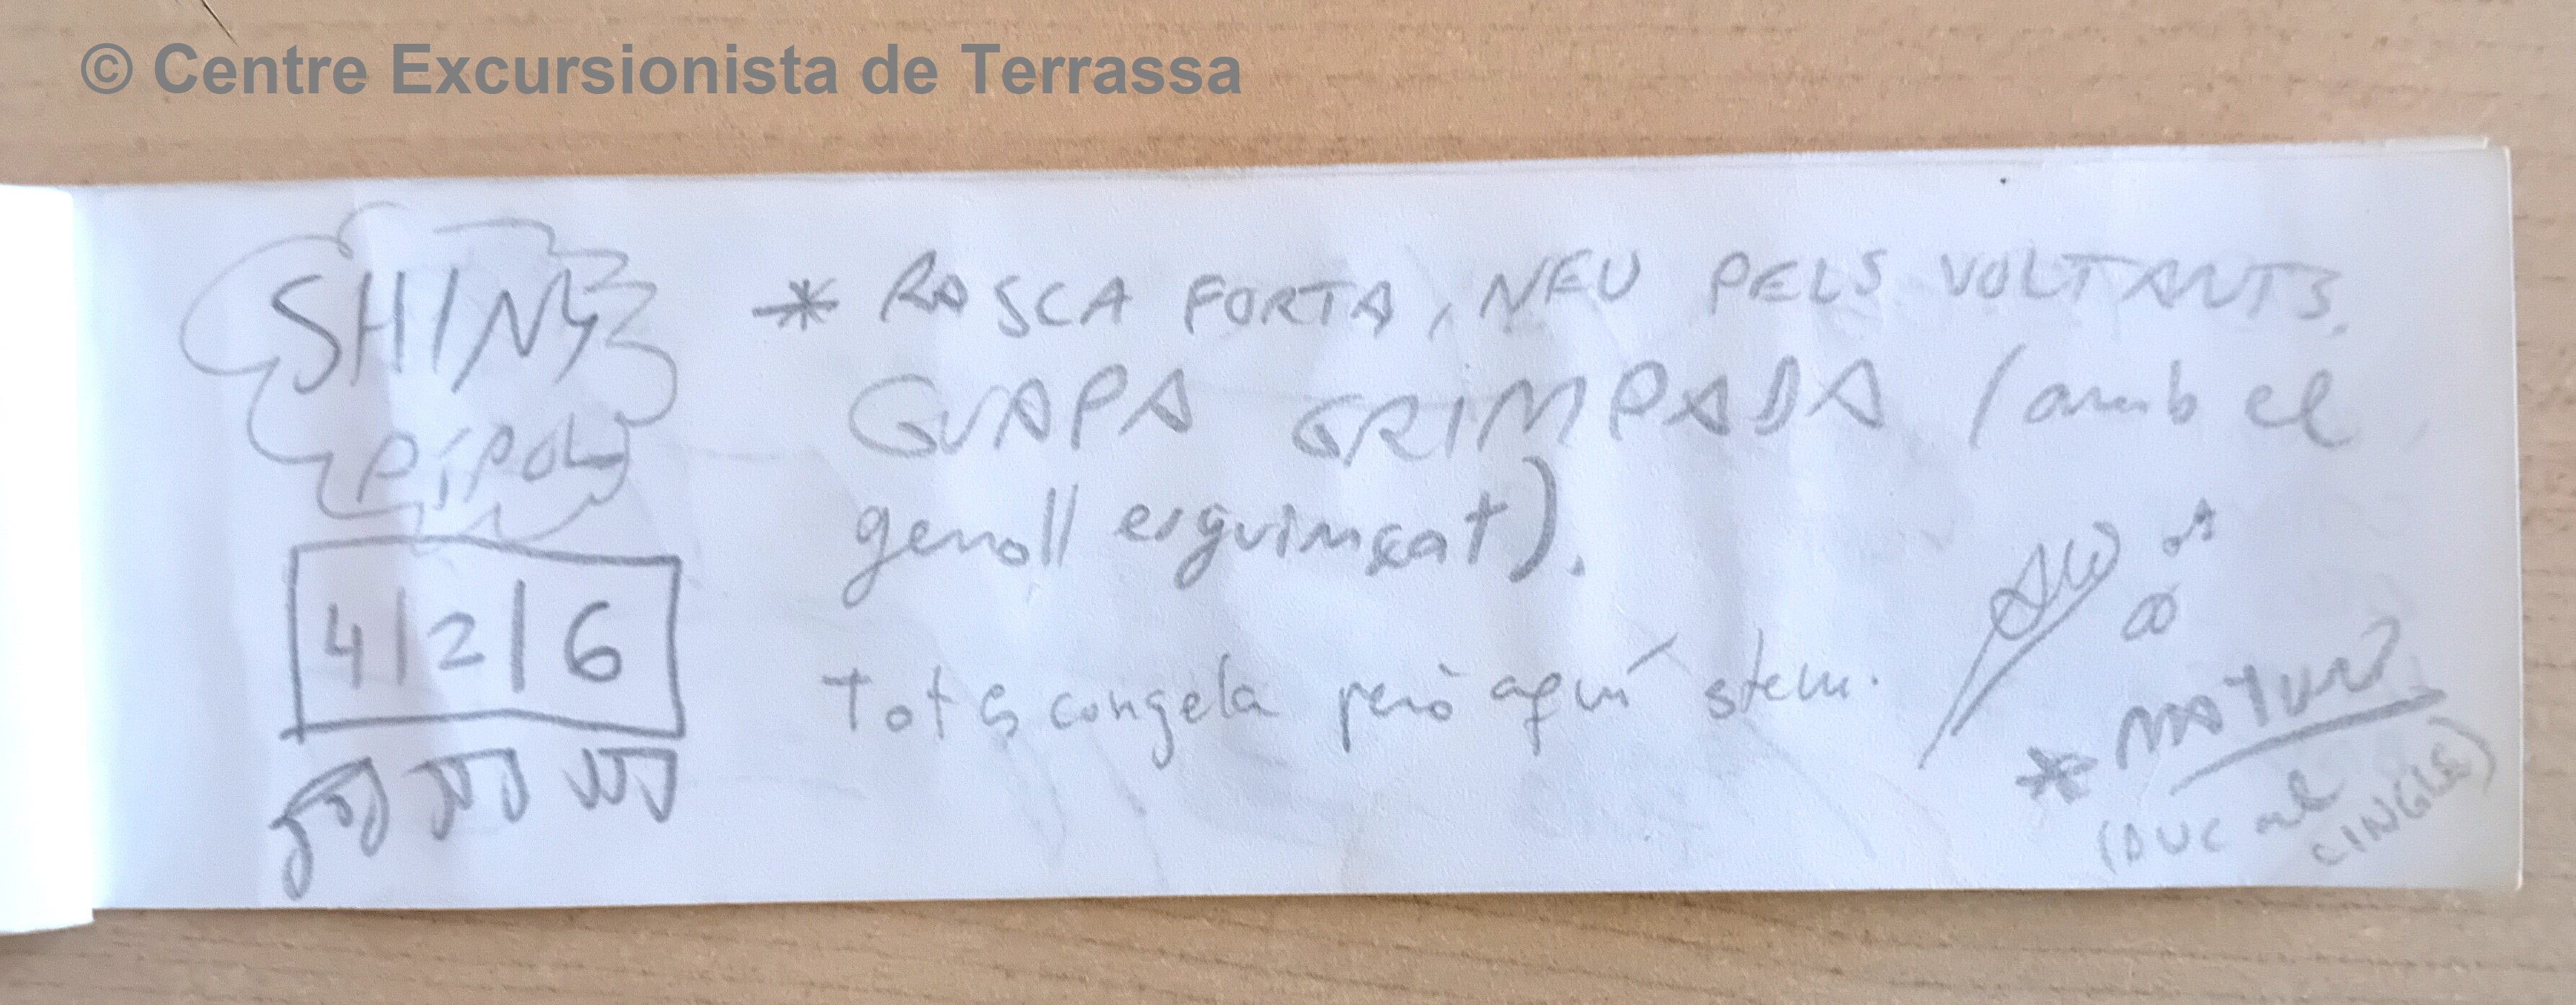 © Centre Excursionista de Terrassa
SHINY
PÍPOL
4/2/6
* RASCA FORTA, NEU PELS VOLTANTS.
GUAPA GRIMPADA (amb el
genoll esguinçat).
Tot es congela però aquí stem.
(DUC al
CINGLE)